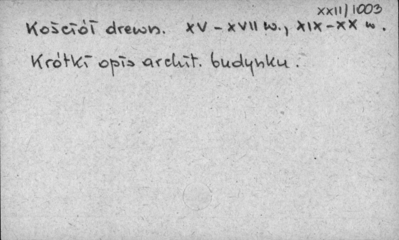 XXII/1003
Kościół drewn. XV-XVII w., XIX-XX w.
Krótki opis archit. budynku.